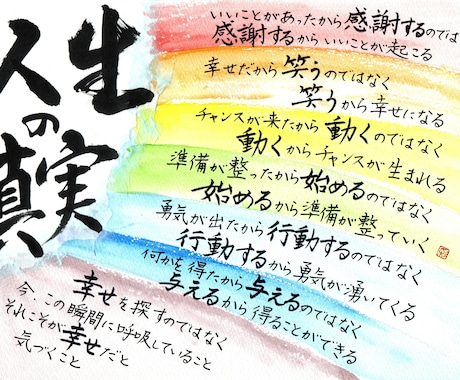 人生
の
真実
いいことがあったから感謝するのでは
感謝するからいいことが起こる
幸せだから笑うのではなく
笑うから幸せになる
チャンスが来たから動くのではなく
動くからチャンスが生まれる
準備が整ったから始めるのではなく
始めるから準備が整っていく
勇気が出たから行動するのではなく
行動するから勇気が湧いてくる
何かを得たから与えるのではなく
与えるから得ることができる
幸せを探すのではなく
今、この瞬間に呼吸していること
それこそが幸せだと
気づくこと